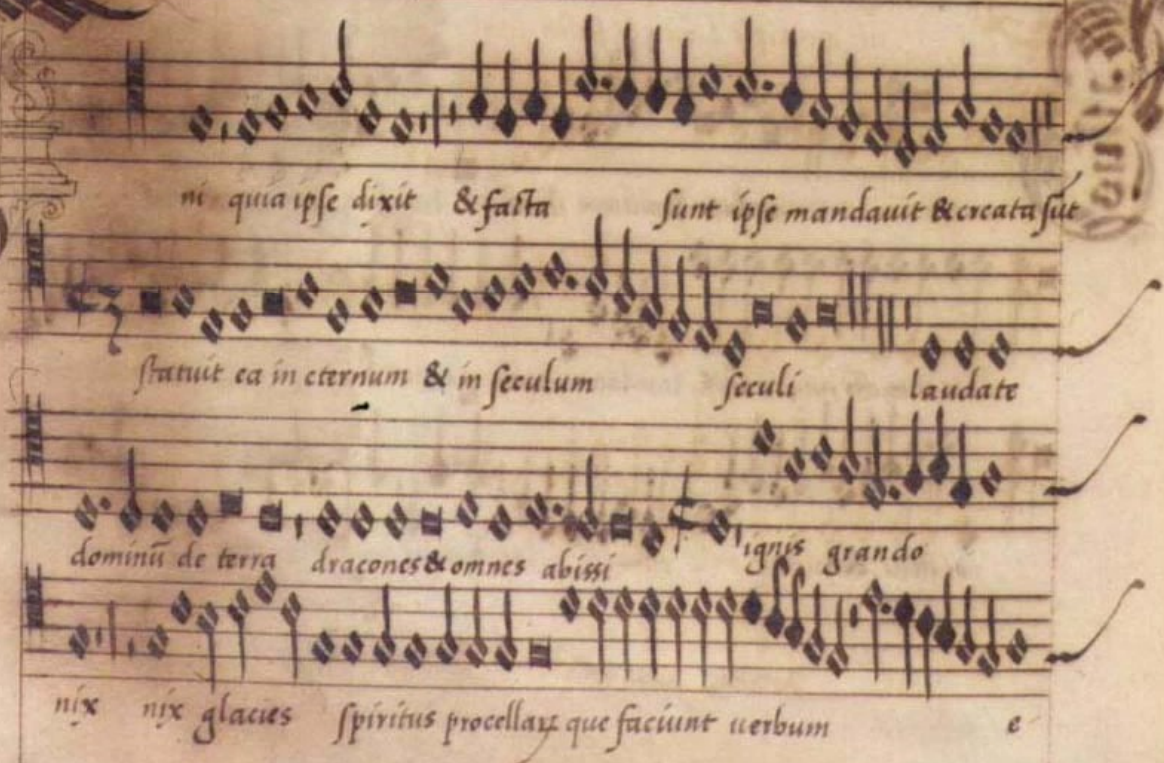 ni quia ipse dixit & facta sunt ipse mandauit & creata sūt
statuit ea in eternum & in seculum seculi laudate
dominū de terra dracones & omnes abissi ignis grando
nix nix glacies spiritus procellaꝝ que faciunt uerbum e